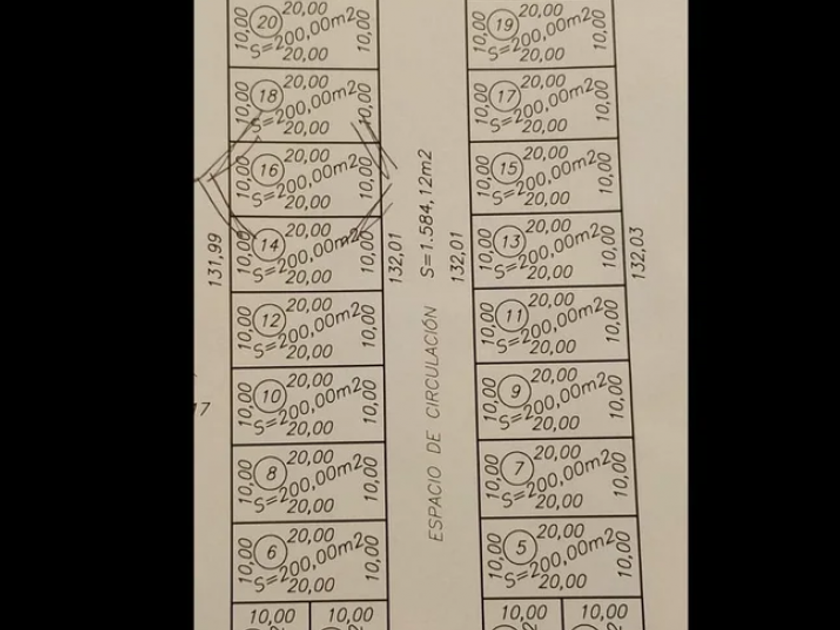 20,00
10,00 20 10,00
S=200,00m2
20,00
20,00
10,00 18 10,00
S=200,00m2
20,00
20,00
10,00 16 10,00
S=200,00m2
20,00
20,00
10,00 14 10,00
S=200,00m2
20,00
20,00
10,00 12 10,00
S=200,00m2
20,00
20,00
10,00 10 10,00
S=200,00m2
20,00
20,00
10,00 8 10,00
S=200,00m2
20,00
20,00
10,00 6 10,00
S=200,00m2
20,00
10,00 10,00
131,99
17
132,01
ESPACIO DE CIRCULACIÓN S=1.584,12m2
132,01
20,00
10,00 19 10,00
S=200,00m2
20,00
20,00
10,00 17 10,00
S=200,00m2
20,00
20,00
10,00 15 10,00
S=200,00m2
20,00
20,00
10,00 13 10,00
S=200,00m2
20,00
20,00
10,00 11 10,00
S=200,00m2
20,00
20,00
10,00 9 10,00
S=200,00m2
20,00
20,00
10,00 7 10,00
S=200,00m2
20,00
20,00
10,00 5 10,00
S=200,00m2
20,00
10,00 10,00
132,03